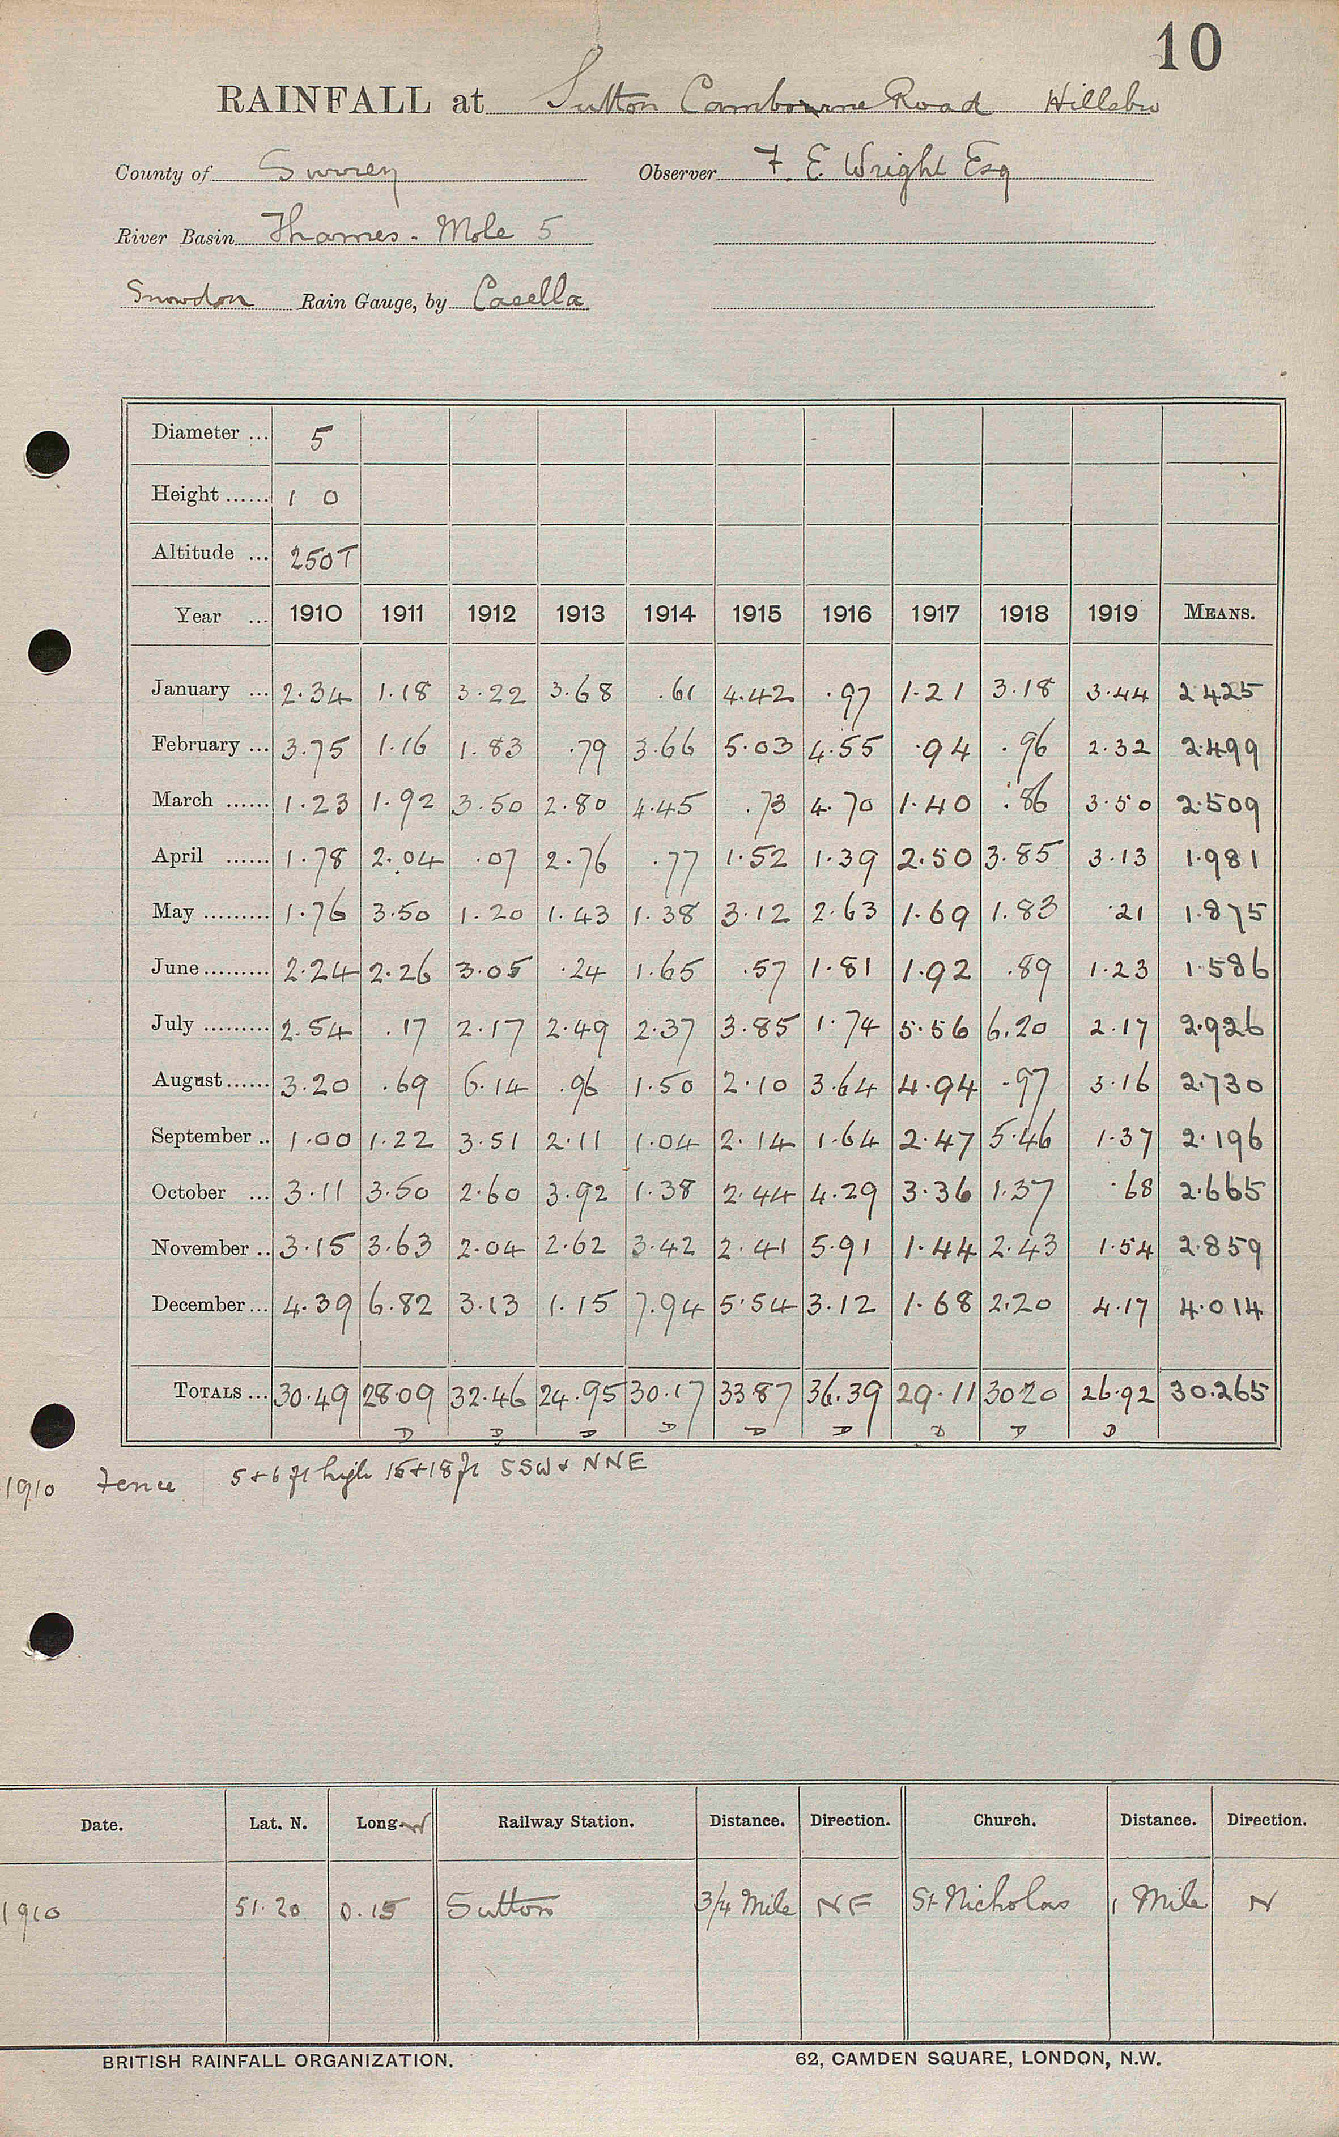 10
RAINFALL at Sutton Cambourne Road Hillsbro
County of Surrey Observer F. E. Wright Esq
River Basin Thames - Mole 5
Snowdon Rain Gauge, by Casella
Diameter ... 5
Height ...... 1 0
Altitude ... 250 T
Year ... 1910 1911 1912 1913 1914 1915 1916 1917 1918 1919 MEANS.
January ... 2.34 1.18 3.22 3.68 .61 4.42 .97 1.21 3.18 3.44 2.425
February ... 3.75 1.16 1.83 .79 3.66 5.03 4.55 .94 .96 2.32 2.499
March ...... 1.23 1.92 3.50 2.80 4.45 .73 4.70 1.40 .86 3.50 2.509
April ...... 1.78 2.04 .07 2.76 .77 1.52 1.39 2.50 3.85 3.13 1.981
May ......... 1.76 3.50 1.20 1.43 1.38 3.12 2.63 1.69 1.83 .21 1.875
June ......... 2.24 2.26 3.05 .24 1.65 .57 1.81 1.92 .89 1.23 1.586
July ......... 2.54 .17 2.17 2.49 2.37 3.85 1.74 5.56 6.20 2.17 2.926
August ...... 3.20 .69 6.14 .96 1.50 2.10 3.64 4.94 .97 3.16 2.730
September .. 1.00 1.22 3.51 2.11 1.04 2.14 1.64 2.47 5.46 1.37 2.196
October ... 3.11 3.50 2.60 3.92 1.38 2.44 4.29 3.36 1.37 .68 2.665
November .. 3.15 3.63 2.04 2.62 3.42 2.41 5.91 1.44 2.43 1.54 2.859
December ... 4.39 6.82 3.13 1.15 7.94 5.54 3.12 1.68 2.20 4.17 4.014
TOTALS ... 30.49 28.09 32.46 24.95 30.17 33.87 36.39 29.11 30.20 26.92 30.265
D D D D D D D D D
1910 Fence 5+6 ft high 15+18 ft SSW + NNE
Date. Lat. N. Long. W Railway Station. Distance. Direction. Church. Distance. Direction.
1910 51.20 0.15 Sutton 3/4 Mile NE St Nicholas 1 Mile N
BRITISH RAINFALL ORGANIZATION. 62, CAMDEN SQUARE, LONDON, N.W.